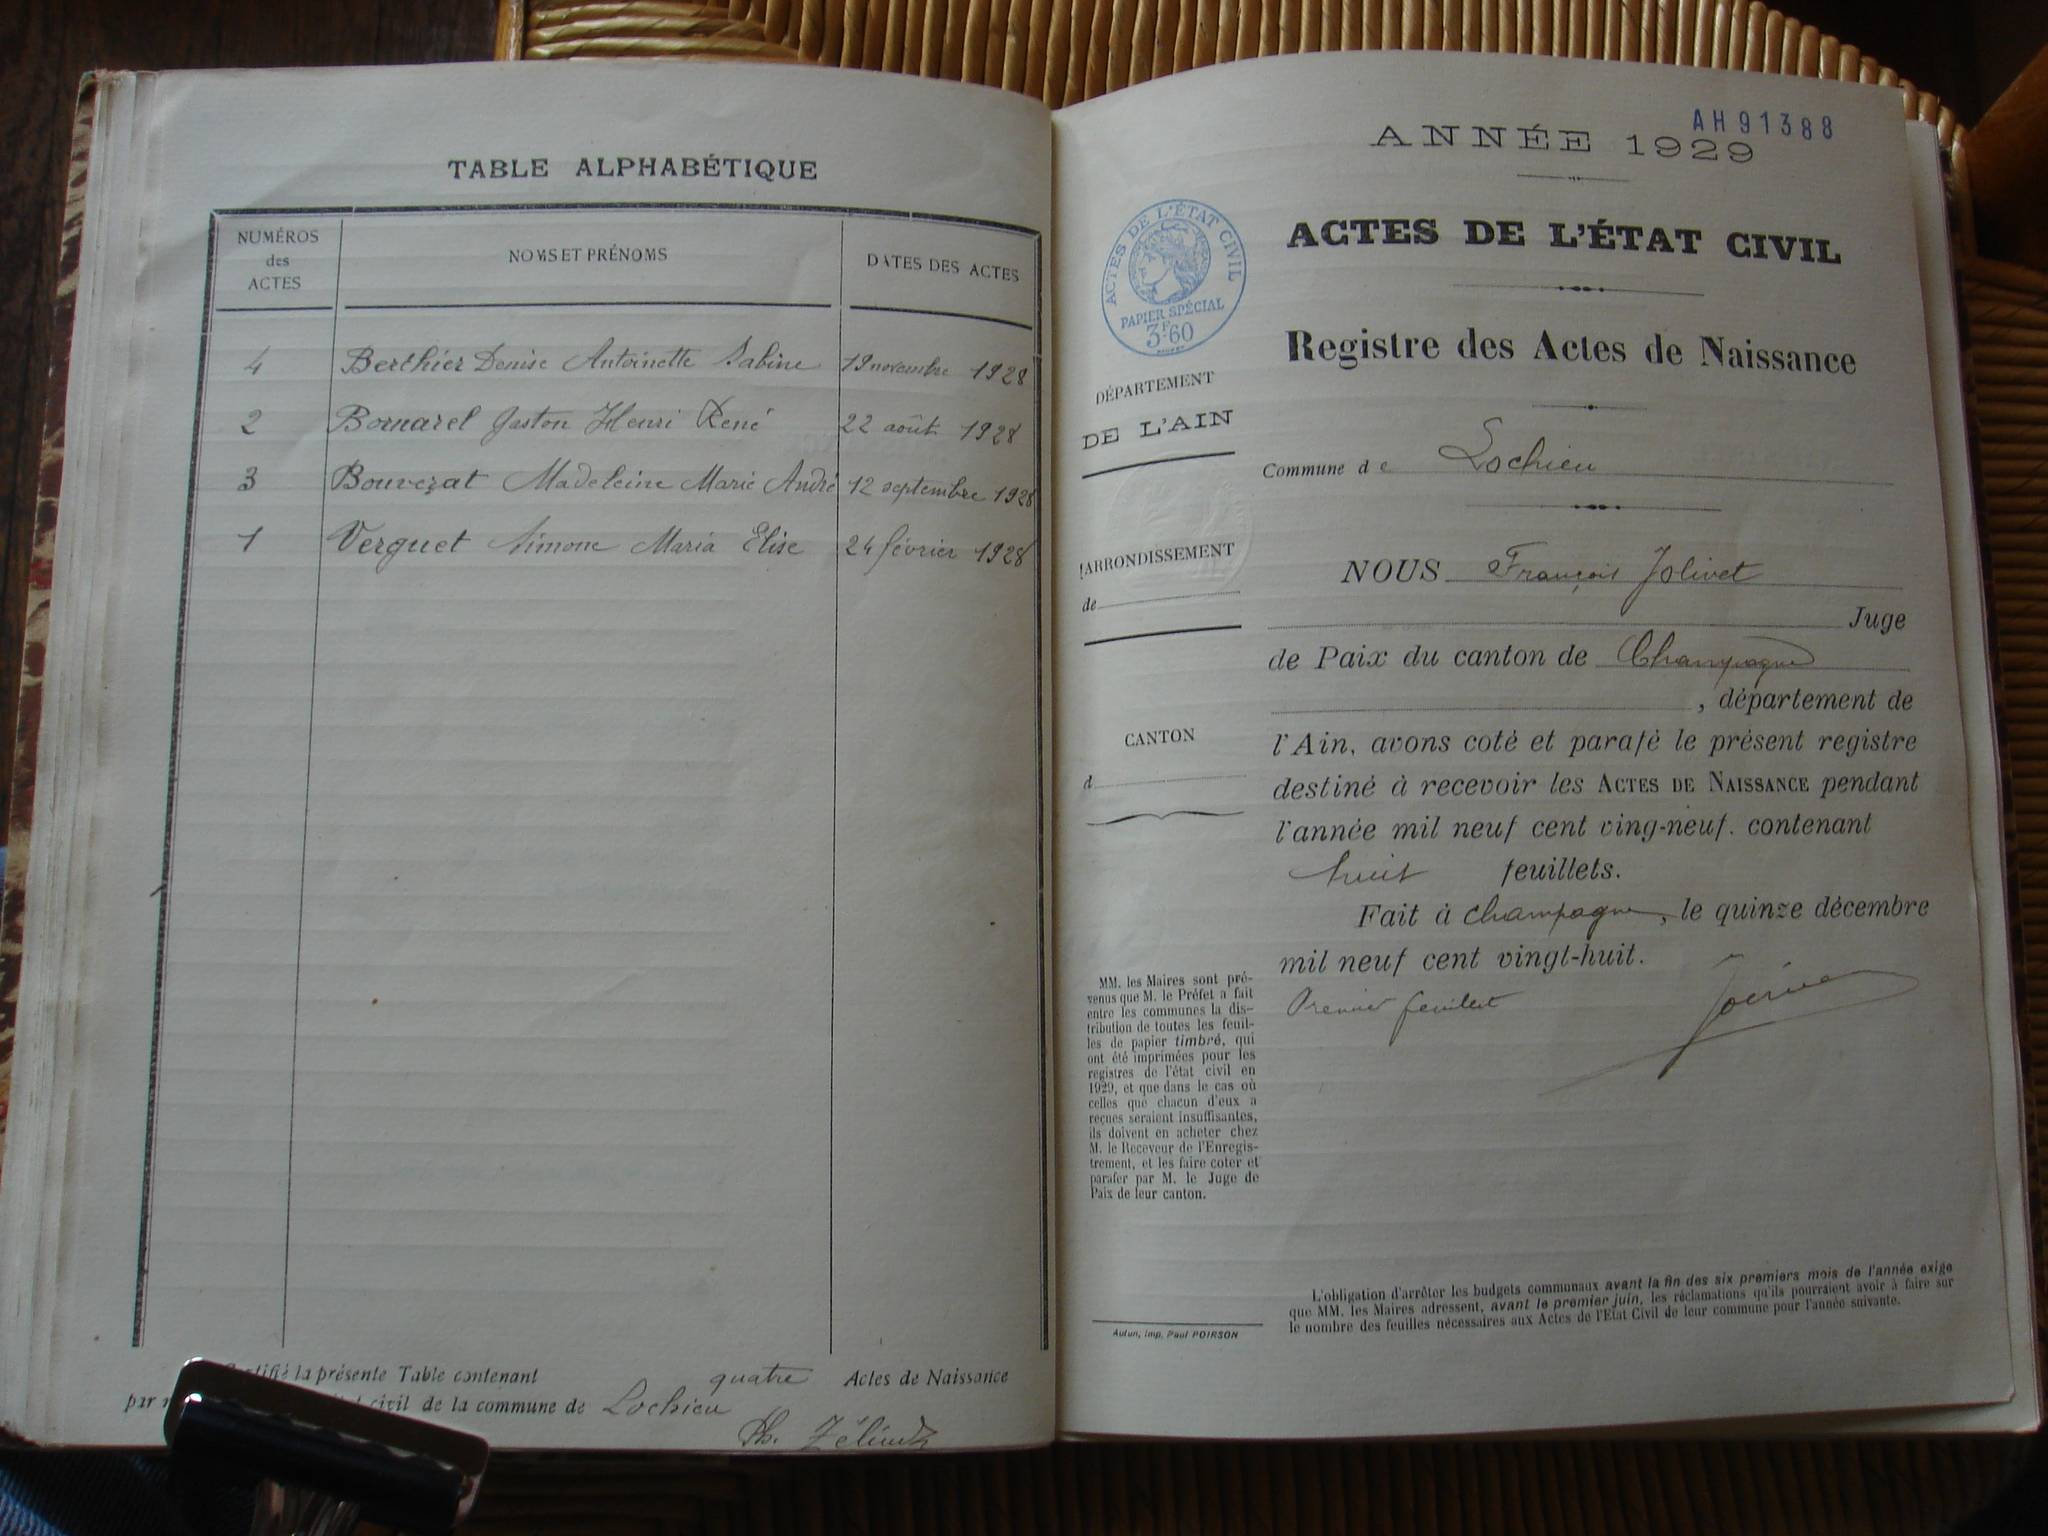 TABLE ALPHABÉTIQUE
NUMÉROS
des
ACTES
NOMS ET PRÉNOMS
DATES DES ACTES
4 Berthier Denise Antoinette Sabine 19 novembre 1928
2 Bornarel Gaston Henri René 22 août 1928
3 Bouvezat Madeleine Marie André 12 septembre 1928
1 Verguet Simone Maria Elise 24 février 1928
la présente Table contenant quatre Actes de Naissance
par civil de la commune de Lochieu
Ph.
AH91388
ANNÉE 1929
ACTES DE L'ÉTAT CIVIL
Registre des Actes de Naissance
ACTES DE L'ÉTAT CIVIL
PAPIER SPÉCIAL
3F60
DÉPARTEMENT
DE L'AIN
ARRONDISSEMENT
de
CANTON
d
Commune de Lochieu
NOUS François Jolivet
Juge
de Paix du canton de Champagne
, département de
l'Ain, avons coté et parafé le présent registre
destiné à recevoir les ACTES DE NAISSANCE pendant
l'année mil neuf cent ving-neuf. contenant
huit feuillets.
Fait à Champagne, le quinze décembre
mil neuf cent vingt-huit.
Premier feuillet
MM. les Maires sont pré-
venus que M. le Préfet a fait
entre les communes la dis-
tribution de toutes les feuil-
les de papier timbré, qui
ont été imprimées pour les
registres de l'état civil en
1929, et que dans le cas où
celles que chacun d'eux a
reçues seraient insuffisantes,
ils doivent en acheter chez
M. le Receveur de l'Enregis-
trement, et les faire coter et
parafer par M. le Juge de
Paix de leur canton.
Autun, imp. Paul POIRSON
L'obligation d'arrêter les budgets communaux avant la fin des six premiers mois de l'année exige
que MM. les Maires adressent, avant le premier juin, les réclamations qu'ils pourraient avoir à faire sur
le nombre des feuilles nécessaires aux Actes de l'Etat Civil de leur commune pour l'année suivante.